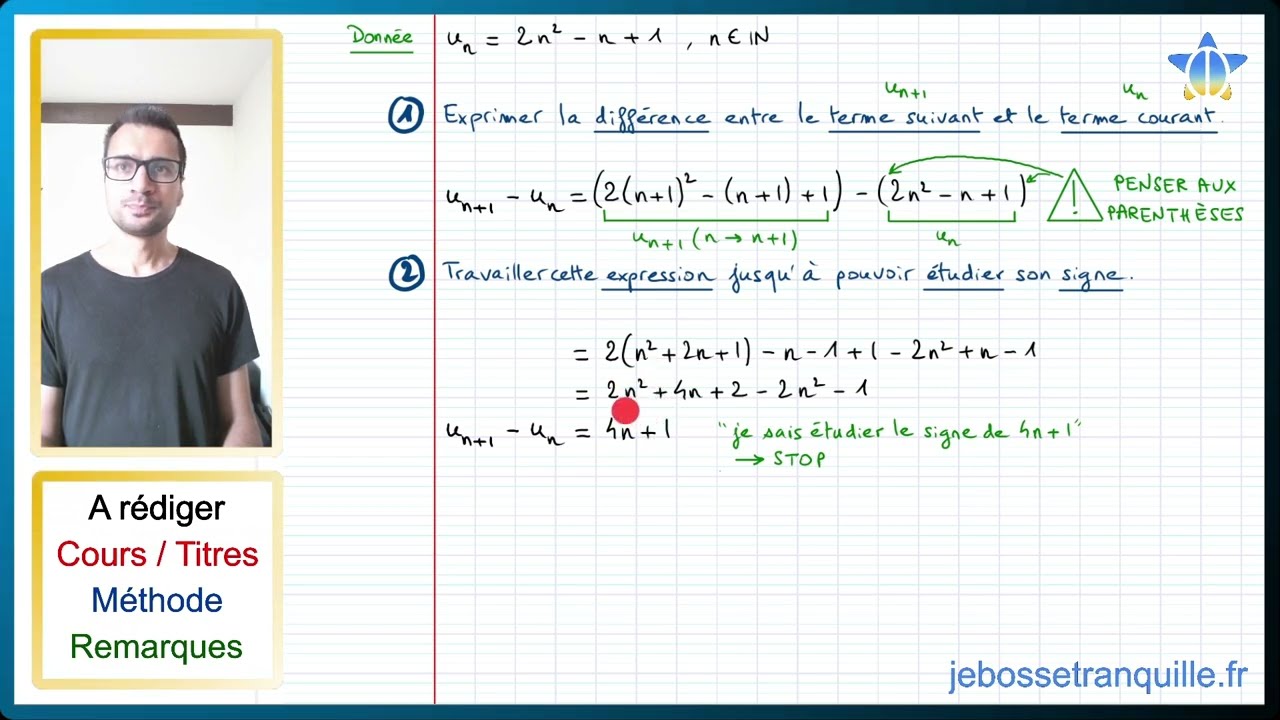 Donnée uₙ = 2n² - n + 1 , n ∈ ℕ
uₙ₊₁ uₙ
① Exprimer la différence entre le terme suivant et le terme courant.
uₙ₊₁ - uₙ = (2(n+1)² - (n+1) + 1) - (2n² - n + 1) ! PENSER AUX
PARENTHÈSES
uₙ₊₁ (n → n+1) uₙ
② Travailler cette expression jusqu'à pouvoir étudier son signe.
= 2(n² + 2n + 1) - n - 1 + 1 - 2n² + n - 1
= 2n² + 4n + 2 - 2n² - 1
uₙ₊₁ - uₙ = 4n + 1 "je sais étudier le signe de 4n+1"
→ STOP
A rédiger
Cours / Titres
Méthode
Remarques
jebossetranquille.fr